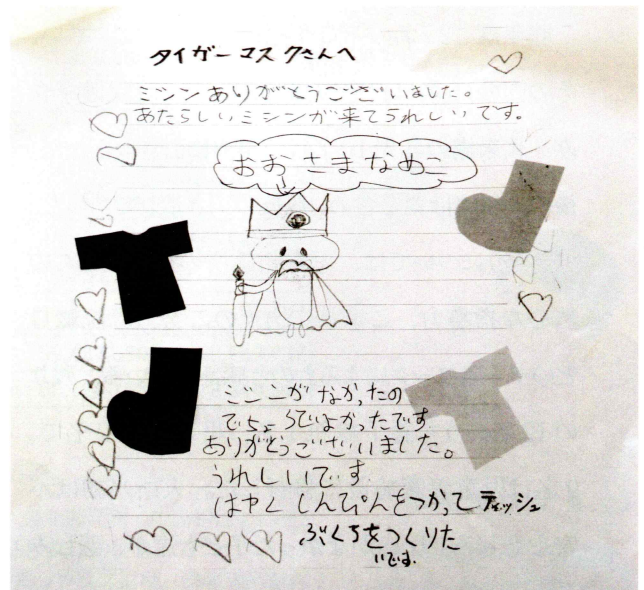 タイガーマスクさんへ
ミシンありがとうございました。
あたらしいミシンが来てうれしいです。
おおさまなめこ
ミシンがなかったの
でちょうでよかったです
ありがとうございました。
うれしいです
はやくしんぴんをつかってティッシュ
ぶくろをつくりた
いです。